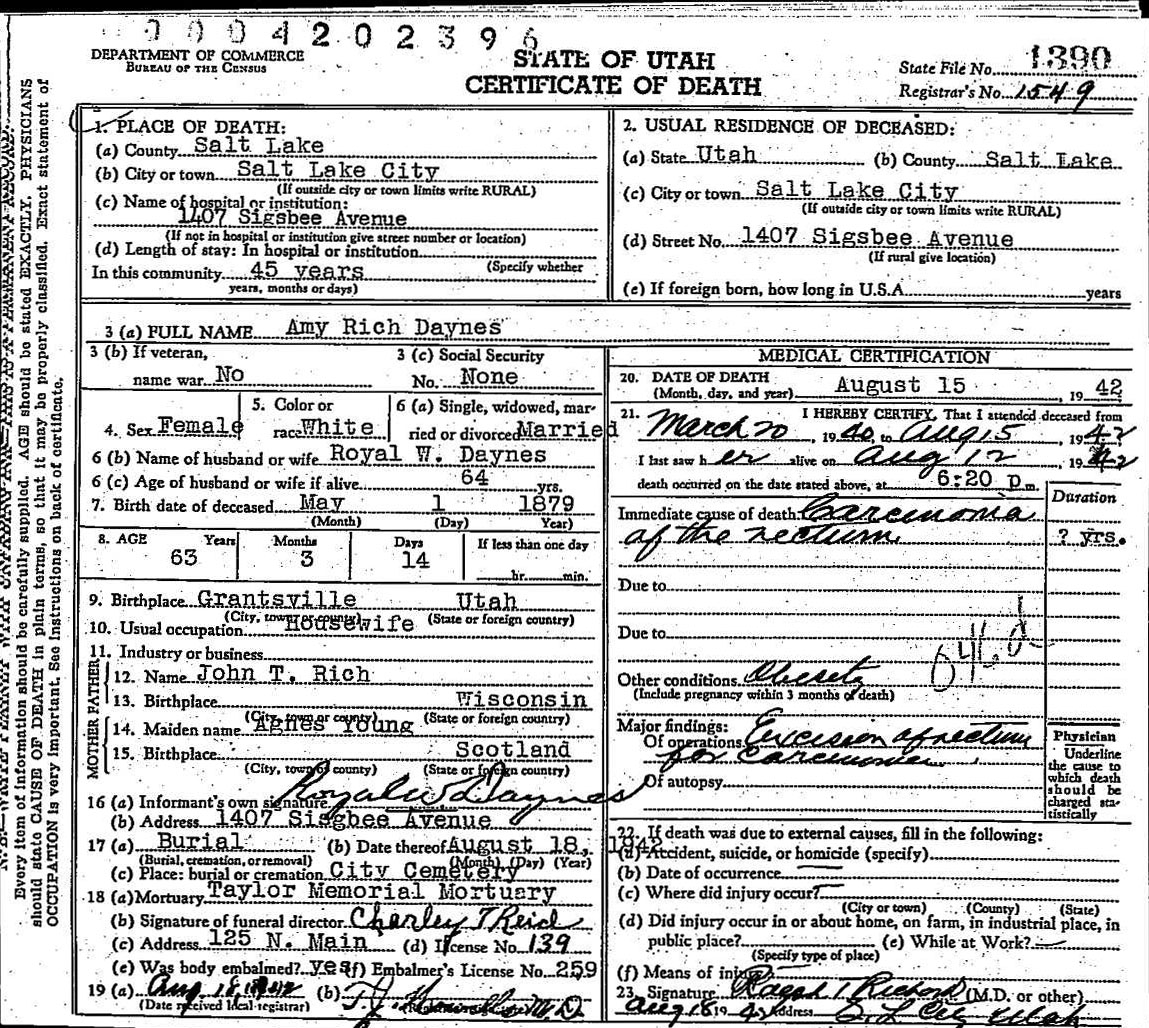 0004202396
DEPARTMENT OF COMMERCE
BUREAU OF THE CENSUS
STATE OF UTAH
CERTIFICATE OF DEATH
State File No. 1390
Registrar's No. 1549
Every item of information should be carefully supplied. AGE should be stated EXACTLY. PHYSICIANS
should state CAUSE OF DEATH in plain terms, so that it may be properly classified. Exact statement of
OCCUPATION is very important. See instructions on back of certificate.
1. PLACE OF DEATH:
(a) County Salt Lake
(b) City or town Salt Lake City
(If outside city or town limits write RURAL)
(c) Name of hospital or institution:
1407 Sigsbee Avenue
(If not in hospital or institution give street number or location)
(d) Length of stay: In hospital or institution
(Specify whether
In this community 45 years
years, months or days)
2. USUAL RESIDENCE OF DECEASED:
(a) State Utah (b) County Salt Lake
(c) City or town Salt Lake City
(If outside city or town limits write RURAL)
(d) Street No. 1407 Sigsbee Avenue
(If rural give location)
(e) If foreign born, how long in U.S.A. years
3 (a) FULL NAME Amy Rich Daynes
3 (b) If veteran,
name war No
3 (c) Social Security
No. None
4. Sex Female
5. Color or
race White
6 (a) Single, widowed, mar-
ried or divorced Married
6 (b) Name of husband or wife Royal W. Daynes
6 (c) Age of husband or wife if alive 64 yrs.
7. Birth date of deceased May 1 1879
(Month) (Day) Year)
8. AGE Years Months Days If less than one day
63 3 14 hr. min.
9. Birthplace Grantsville Utah
(City, town or county) (State or foreign country)
10. Usual occupation Housewife
11. Industry or business
FATHER
12. Name John T. Rich
13. Birthplace Wisconsin
(City, town or county) (State or foreign country)
MOTHER
14. Maiden name Agnes Young
15. Birthplace Scotland
(City, town of county) (State or foreign country)
16 (a) Informant's own signature Royal W Daynes
(b) Address 1407 Sisgbee Avenue
17 (a) Burial (b) Date thereof August 18, 1942
(Burial, cremation, or removal) (Month) (Day) (Year)
(c) Place: burial or cremation City Cemetery
18 (a) Mortuary Taylor Memorial Mortuary
(b) Signature of funeral director Charley T Reid
(c) Address 125 N. Main (d) License No. 139
(e) Was body embalmed? yes (f) Embalmer's License No. 259
19 (a) Aug 18 1942 (b) M.D.
(Date received local registrar)
MEDICAL CERTIFICATION
20. DATE OF DEATH
(Month, day, and year) August 15, 1942
21. I HEREBY CERTIFY, That I attended deceased from
March 20, 1940, to Aug 15 1942
I last saw her alive on Aug 12 1942
death occurred on the date stated above, at 6:20 p.m.
Duration
Immediate cause of death Carcinonia
of the rectum ? yrs.
Due to
Due to
Other conditions Obesety
(Include pregnancy within 3 months of death)
Major findings:
Of operations Excision of rectum
for carcinonia
Of autopsy
Physician
Underline
the cause to
which death
should be
charged sta-
tistically
22. If death was due to external causes, fill in the following:
(a) Accident, suicide, or homicide (specify)
(b) Date of occurrence
(c) Where did injury occur?
(City or town) (County) (State)
(d) Did injury occur in or about home, on farm, in industrial place, in
public place? (e) While at Work?
(Specify type of place)
(f) Means of injury
23. Signature Ralph T Richards (M.D. or other)
Aug 18 1942 Address S. L. City Utah